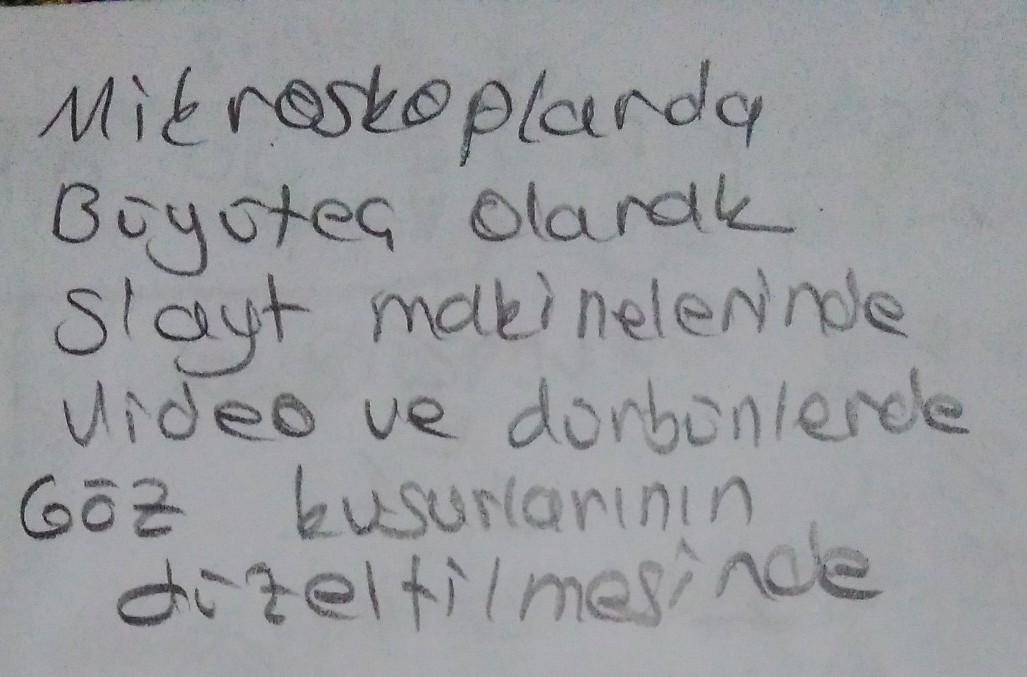 Mikroskoplarda
Büyüteç olarak
Slayt makinelerinde
Video ve dürbünlerde
Göz kusurlarının
düzeltilmesinde